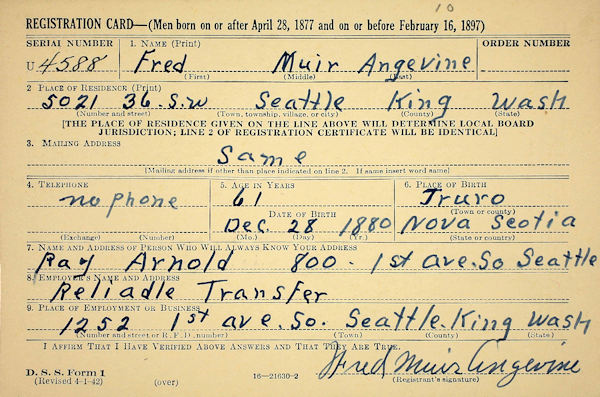 10
REGISTRATION CARD—(Men born on or after April 28, 1877 and on or before February 16, 1897)
SERIAL NUMBER 1. NAME (Print) ORDER NUMBER
U 4588 Fred Muir Angevine
(First) (Middle) (Last)
2 PLACE OF RESIDENCE (Print)
5021 36. S.W Seattle King Wash
(Number and street) (Town, township, village, or city) (County) (State)
[THE PLACE OF RESIDENCE GIVEN ON THE LINE ABOVE WILL DETERMINE LOCAL BOARD
JURISDICTION; LINE 2 OF REGISTRATION CERTIFICATE WILL BE IDENTICAL]
3. MAILING ADDRESS
Same
[Mailing address if other than place indicated on line 2. If same insert word same]
4. TELEPHONE 5. AGE IN YEARS 6. PLACE OF BIRTH
no phone 61 Truro
DATE OF BIRTH (Town or county)
Dec. 28 1880 Nova Scotia
(Exchange) (Number) (Mo.) (Day) (Yr.) (State or country)
7. NAME AND ADDRESS OF PERSON WHO WILL ALWAYS KNOW YOUR ADDRESS
Ray Arnold 800 1st ave. So Seattle
8. EMPLOYER'S NAME AND ADDRESS
Reliadle Transfer
9. PLACE OF EMPLOYMENT OR BUSINESS
1252 1st ave. So. Seattle. King Wash
(Number and street or R. F. D. number) (Town) (County) (State)
I AFFIRM THAT I HAVE VERIFIED ABOVE ANSWERS AND THAT THEY ARE TRUE.
Fred Muir Angevine
D. S. S. Form 1
(Revised 4-1-42) (over) 16—21630-2 (Registrant's signature)